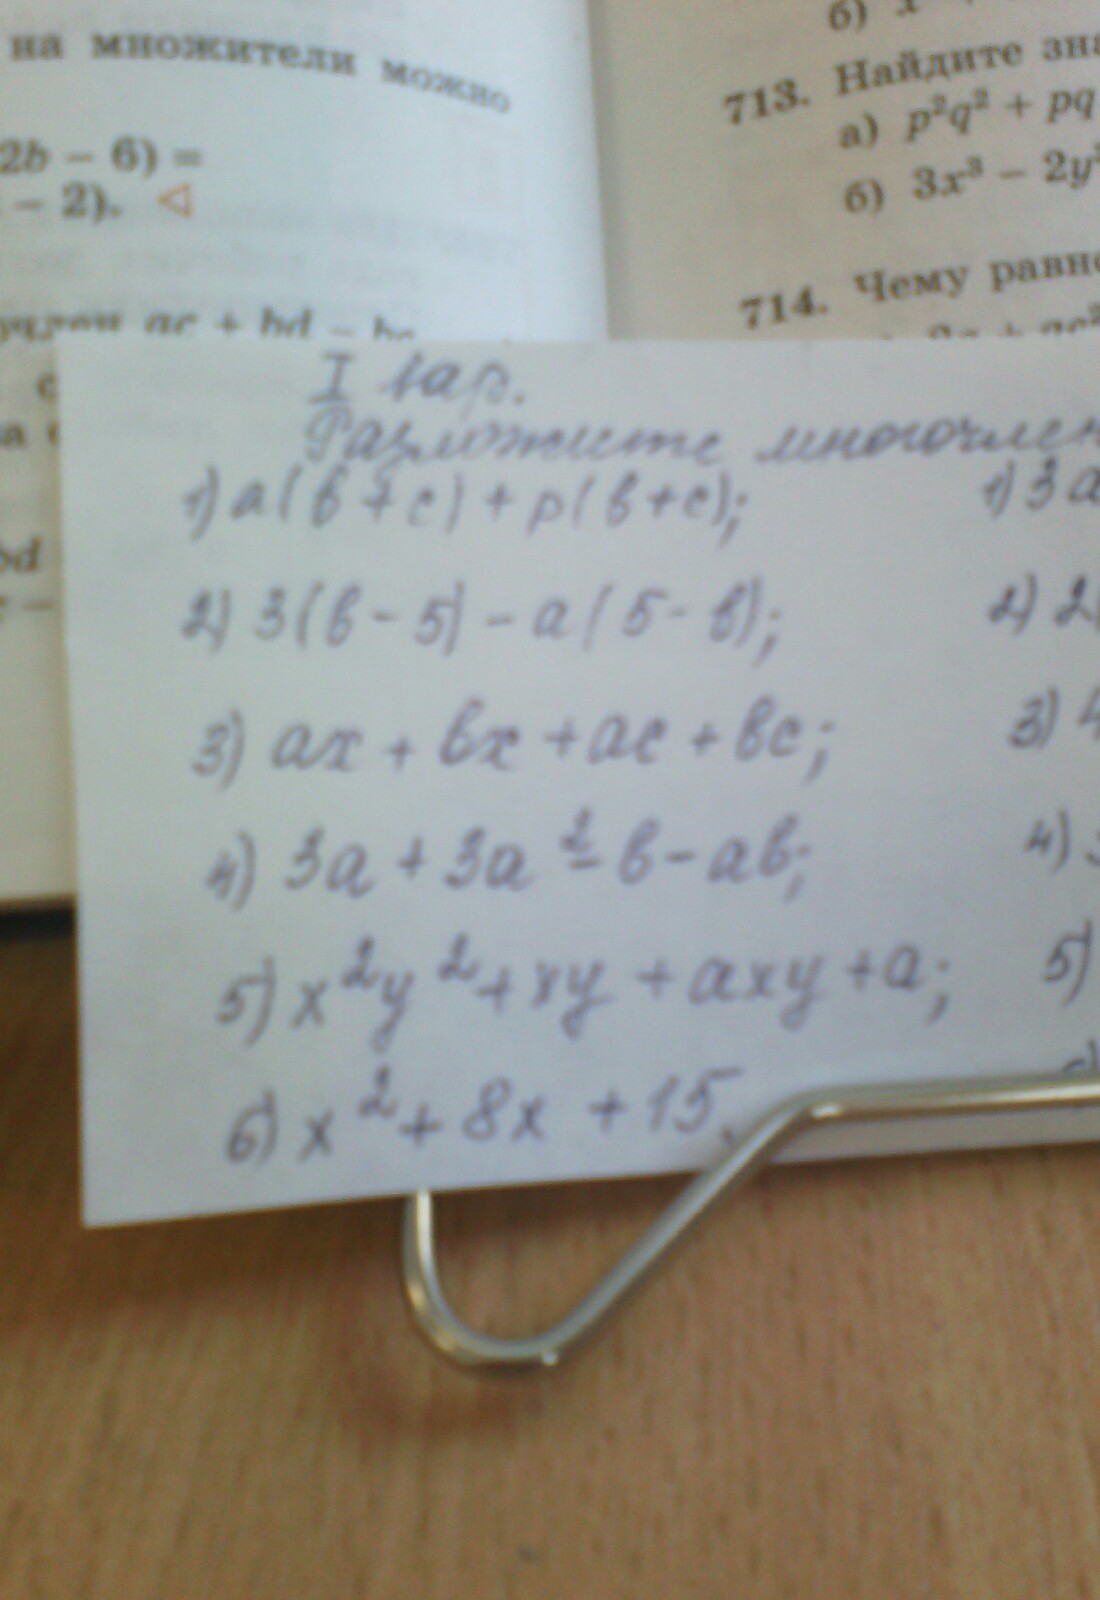 на множители можно
2b − 6) =
− 2). ◁
ac + bd − bc
bd
б) x
713. Найдите зна
а) p²q² + pq
б) 3x³ − 2y²
714. Чему равно
I вар.
Разложите многочлен
1) a(в+c) + p(в+c);
2) 3(в − 5) − a(5 − в);
3) ax + вx + ac + вc;
4) 3a + 3a² − в − aв;
5) x²y² + xy + axy + a;
6) x² + 8x + 15.
1) 3a
2) 2(
3) 4
4) 3
5)